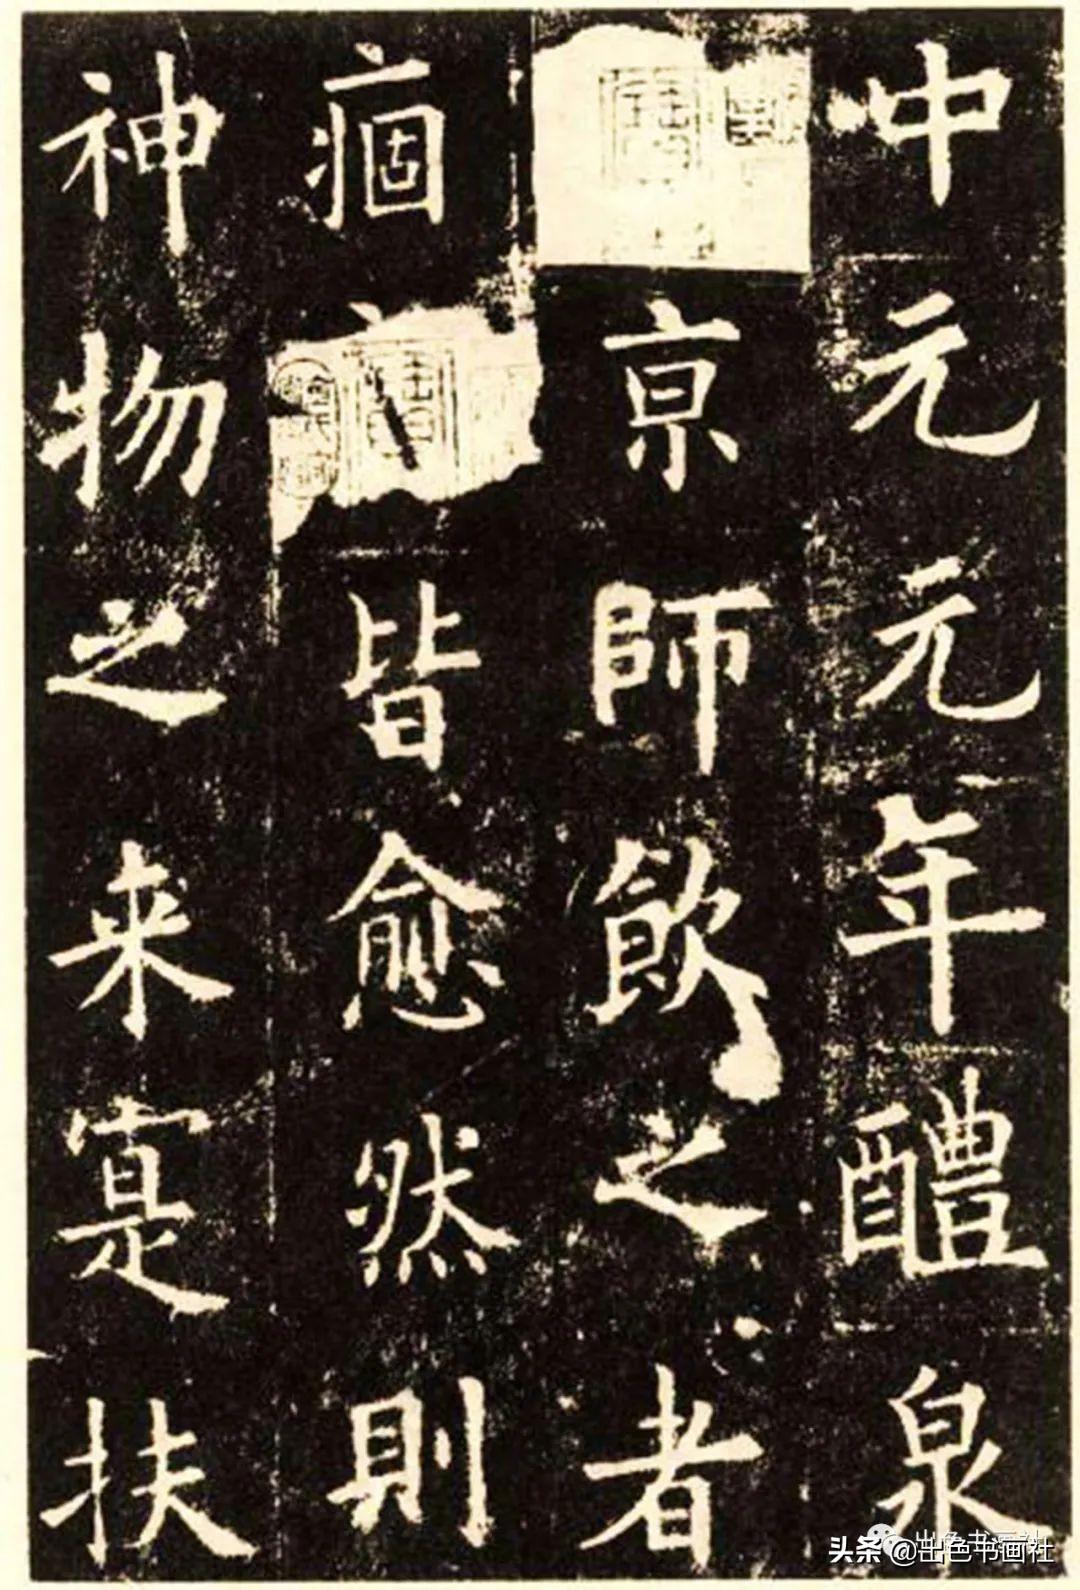 中元元年醴泉
京師飲之者
痼皆愈然則
神物之来寔扶
头条@出色书画社
出色书画社